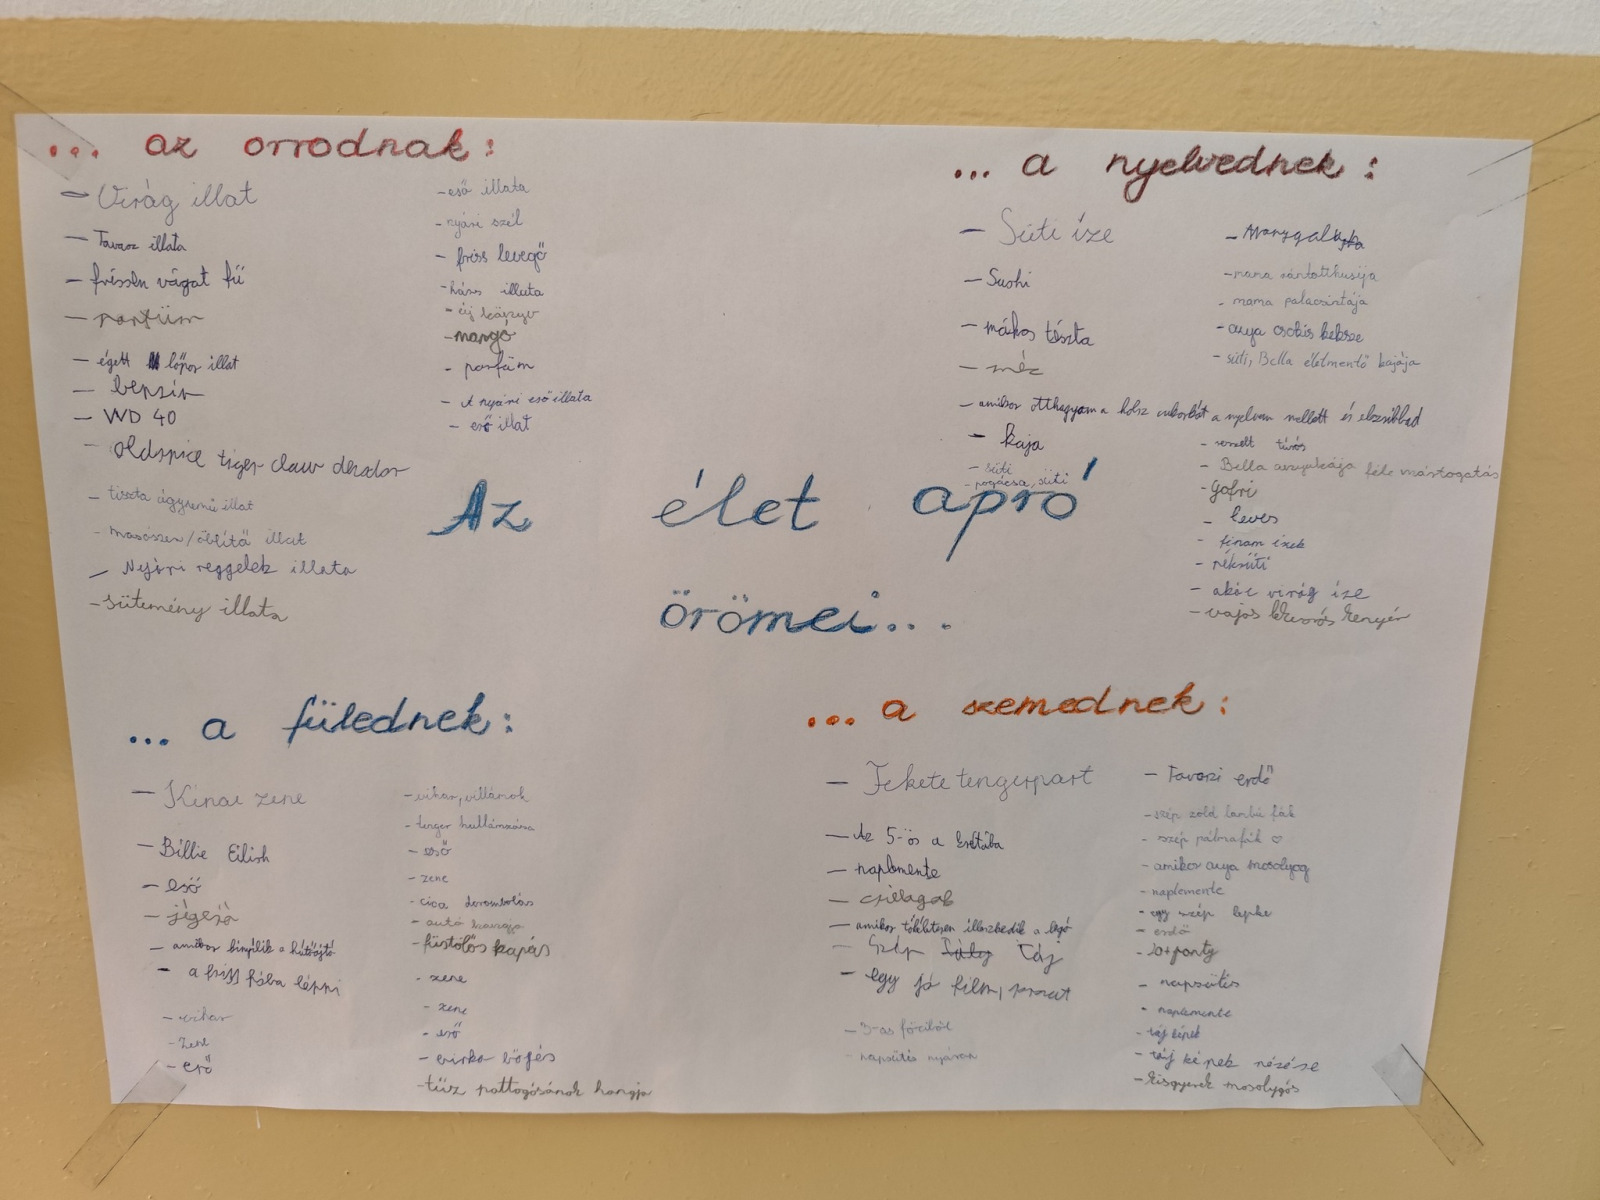 ... az orrodnak:
- Virág illat
- Tavasz illata
- frissen vágat fű
- parfüm
- égett lőpor illat
- benzin
- WD 40
- oldspice tiger claw dezodor
- tiszta ágynemű illat
- mosószer/öblítő illat
- Nyári reggelek illata
- sütemény illata
- eső illata
- nyári szél
- friss levegő
- illata
- új könyv
- mangó
- parfüm
- A nyári eső illata
- eső illat
... a nyelvednek:
- Süti íze
- Sushi
- mákos tészta
- méz
- amikor otthagyom a holsz cukorkát a nyelvem mellett és elzsibbad
- kaja
- süti
- pogácsa, süti
- Aranygaluska
- mama
- mama palacsintája
- anya csokis keksze
- süti, Bella életmentő kajája
- túrós
- Bella anyukája féle mártogatás
- gofri
- leves
- finom ízek
- répasüti
- akác virág íze
- vajos kenyér
Az élet apró
örömei...
... a fülednek:
- Kínai zene
- Billie Eilish
- eső
- jégeső
- amikor a hűtőajtó
- a friss hóba lépni
- vihar
- zene
- eső
- vihar, villámok
- tenger hullámzása
- eső
- zene
- cica dorombolás
- autó hangja
- füstölős kapás
- zene
- zene
- eső
- böfés
- tűz pattogásának hangja
... a szemednek:
- Fekete tengerpart
- Az 5-ös a krétába
- naplemente
- csillagok
- amikor tökéletesen illeszkedik a legó
- Szép Táj
- egy jó film,
- 3-as föciból
- napsütés nyáron
- Tavaszi erdő
- szép zöld lombú fák
- szép pálmafák ♡
- amikor anya mosolyog
- naplemente
- egy szép lepke
- erdő
- 20+ponty
- napsütés
- naplemente
- táj képek
- táj képek nézése
- kisgyerek mosolygós